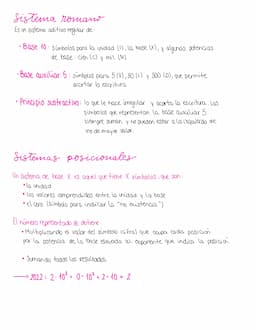 Sistema romano
Es un sistema aditivo regular de:
• Base 10: símbolos para la unidad (I), la base (X), y algunas potencias
de base: cien (C) y mil (M).
• Base auxiliar 5: símbolos para 5 (V), 50 (L) y 500 (D), que permite
acortar la escritura.
• Principio sustractivo: lo que le hace irregular y acorta la escritura. Los
símbolos que representan la base auxiliar 5
siempre suman y no pueden estar a la izquierda de
uno de mayor valor.
Sistemas posicionales
Un sistema de base X es aquel que tiene X símbolos, que son:
• la unidad
• los valores comprendidos entre la unidad y la base
• el cero (símbolo para indicar la "no existencia")
El número representado se obtiene:
• Multiplicando el valor del símbolo (cifra) que ocupa cada posición
por la potencia de la base elevada al exponente que indica la posición.
• Sumando todos los resultados.
2022 = 2 · 10³ + 0 · 10² + 2 · 10 + 2